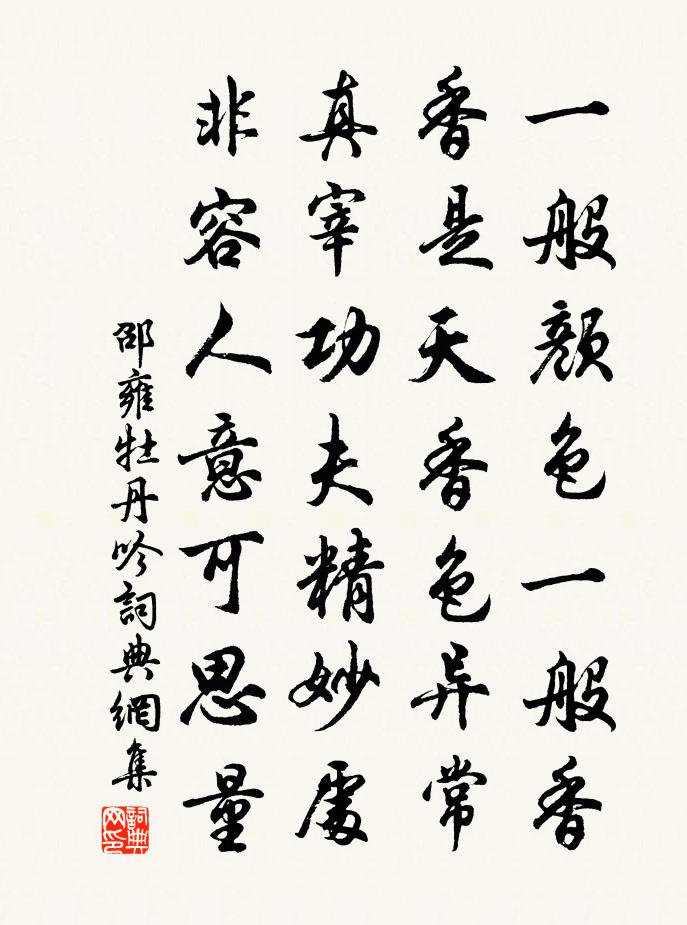 一般顏色一般香
香是天香色异常
真宰功夫精妙處
非容人意可思量
邵雍牡丹吟詞典網集
詞典网印